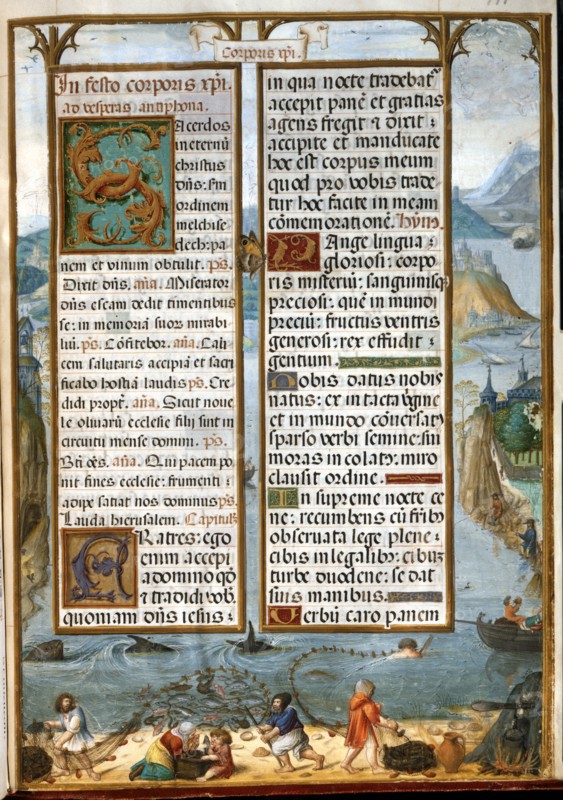 Corporis xpi.
In festo corporis xpi.
ad vesperas antiphona.
Sacerdos
in eternū
christus
dn̄s: scd̄m
ordinem
melchise-
dech: pa
nem et vinum obtulit. ps.
Dixit dn̄s. an̄a. Miserator
dn̄s escam dedit timentibus
se: in memoriā suor mirabi
liū. ps. Cōfitebor. an̄a. Cali
cem salutaris accipiā et sacri
ficabo hostiā laudis ps. Cre
didi propt. an̄a. Sicut noue
le oliuarū ecclesie filij sint in
circuitu mense domini. ps.
Bt̄i oēs. an̄a. Qui pacem po
nit fines ecclesie: frumenti
adipe satiat nos dominus ps.
Lauda hierusalem. Capitulū
FRatres: ego
enim accepi
a domino qd̄
& tradidi vob.
quoniam dn̄s iesus
in qua nocte tradebat
accepit panē et gratias
agens fregit & dixit
accipite et manducate
hoc est corpus meum
quod pro vobis trade
tur hoc facite in meam
cōmemorationē. hym.
PAnge lingua
gloriosi: corpo
ris misteriū: sanguinisq
preciosi: quē in mundi
preciū: fructus ventris
generosi: rex effudit
gentium.
Nobis datus nobis
natus: ex intacta vgine
et in mundo cōuersatꝰ
sparso verbi semine: sui
moras incolatꝰ: miro
clausit ordine.
In supreme nocte ce
ne: recumbens cū frībꝰ
obseruata lege plene
cibis in legalibꝰ: cibuz
turbe duodene: se dat
suis manibus.
Verbū caro panem